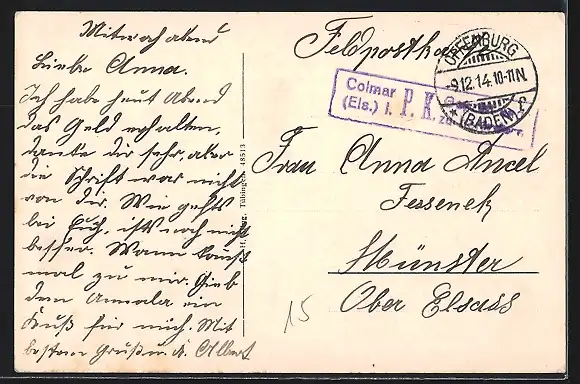 Mitwoch abend
Liebe Anna.
Ich habe heut Abend
das Geld erhalten,
danke dir sehr, aber
die Schrift war nicht
von dir. Wie gehts
bei Euch, ists noch nicht
besser. Wann komst
mal zu mir. Gieb
dem Annala ein
Kuß für mich. Mit
bestem Gruß u. Albert
Tübingen. 48513
Feldpostkarte
OFFENBURG
9.12.14.10-11N.
(BADEN)
Colmar
(Els.) I. P. K.
Frau Anna Ancel
Fessenek
Münster
Ober Elsass
15